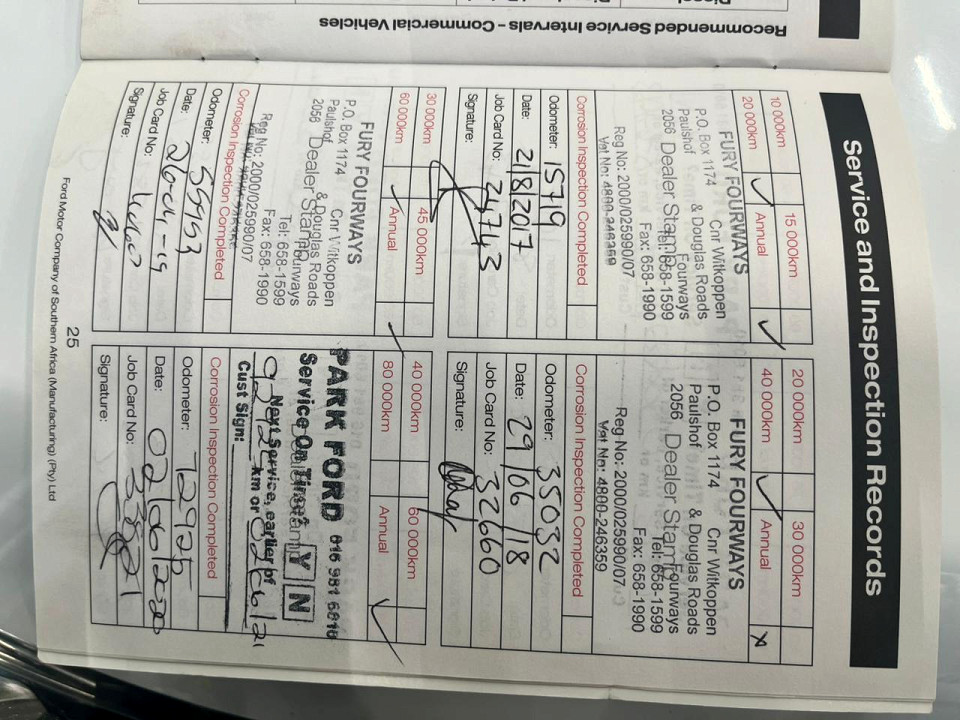 Recommended Service Intervals - Commercial Vehicles
Service and Inspection Records
10 000km
15 000km
20 000km
Annual
FURY FOURWAYS
P.O. Box 1174 Cnr Witkoppen
Paulshof & Douglas Roads
2056 Dealer Stamp Fourways
Tel: 658-1599
Fax: 658-1990
Reg No: 2000/025990/07
Vat No: 4800-246359
Corrosion Inspection Completed
Odometer: 15719
Date: 2/8/2017
Job Card No: 24743
Signature:
20 000km
30 000km
40 000km
Annual
FURY FOURWAYS
P.O. Box 1174 Cnr Witkoppen
Paulshof & Douglas Roads
2056 Dealer Stamp Fourways
Tel: 658-1599
Fax: 658-1990
Reg No: 2000/025990/07
Vat No: 4800-246359
Corrosion Inspection Completed
Odometer: 35032
Date: 29/06/18
Job Card No: 32660
Signature:
30 000km
45 000km
60 000km
Annual
FURY FOURWAYS
P.O. Box 1174 Cnr Witkoppen
Paulshof & Douglas Roads
2056 Dealer Stamp Fourways
Tel: 658-1599
Fax: 658-1990
Reg No: 2000/025990/07
Corrosion Inspection Completed
Odometer: 55953
Date: 26-04-19
Job Card No:
Signature:
40 000km
60 000km
80 000km
Annual
PARK FORD
Service On Time? Y N
Next Service, earlier of
km or
Cust Sign:
Corrosion Inspection Completed
Odometer: 72925
Date:
Job Card No:
Signature:
25
Ford Motor Company of Southern Africa (Manufacturing) (Pty) Ltd